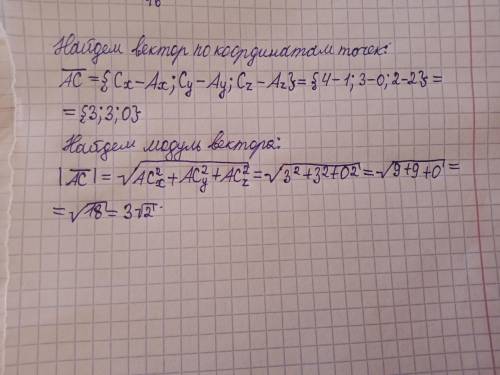 Найдем вектор по координатам точек:
AC = {Cx-Ax; Cy-Ay; Cz-Az} = {4-1; 3-0; 2-2} =
= {3; 3; 0}
Найдем модуль вектора:
|AC| = √(ACx² + ACy² + ACz²) = √(3² + 3² + 0²) = √(9+9+0) =
= √18 = 3√2.